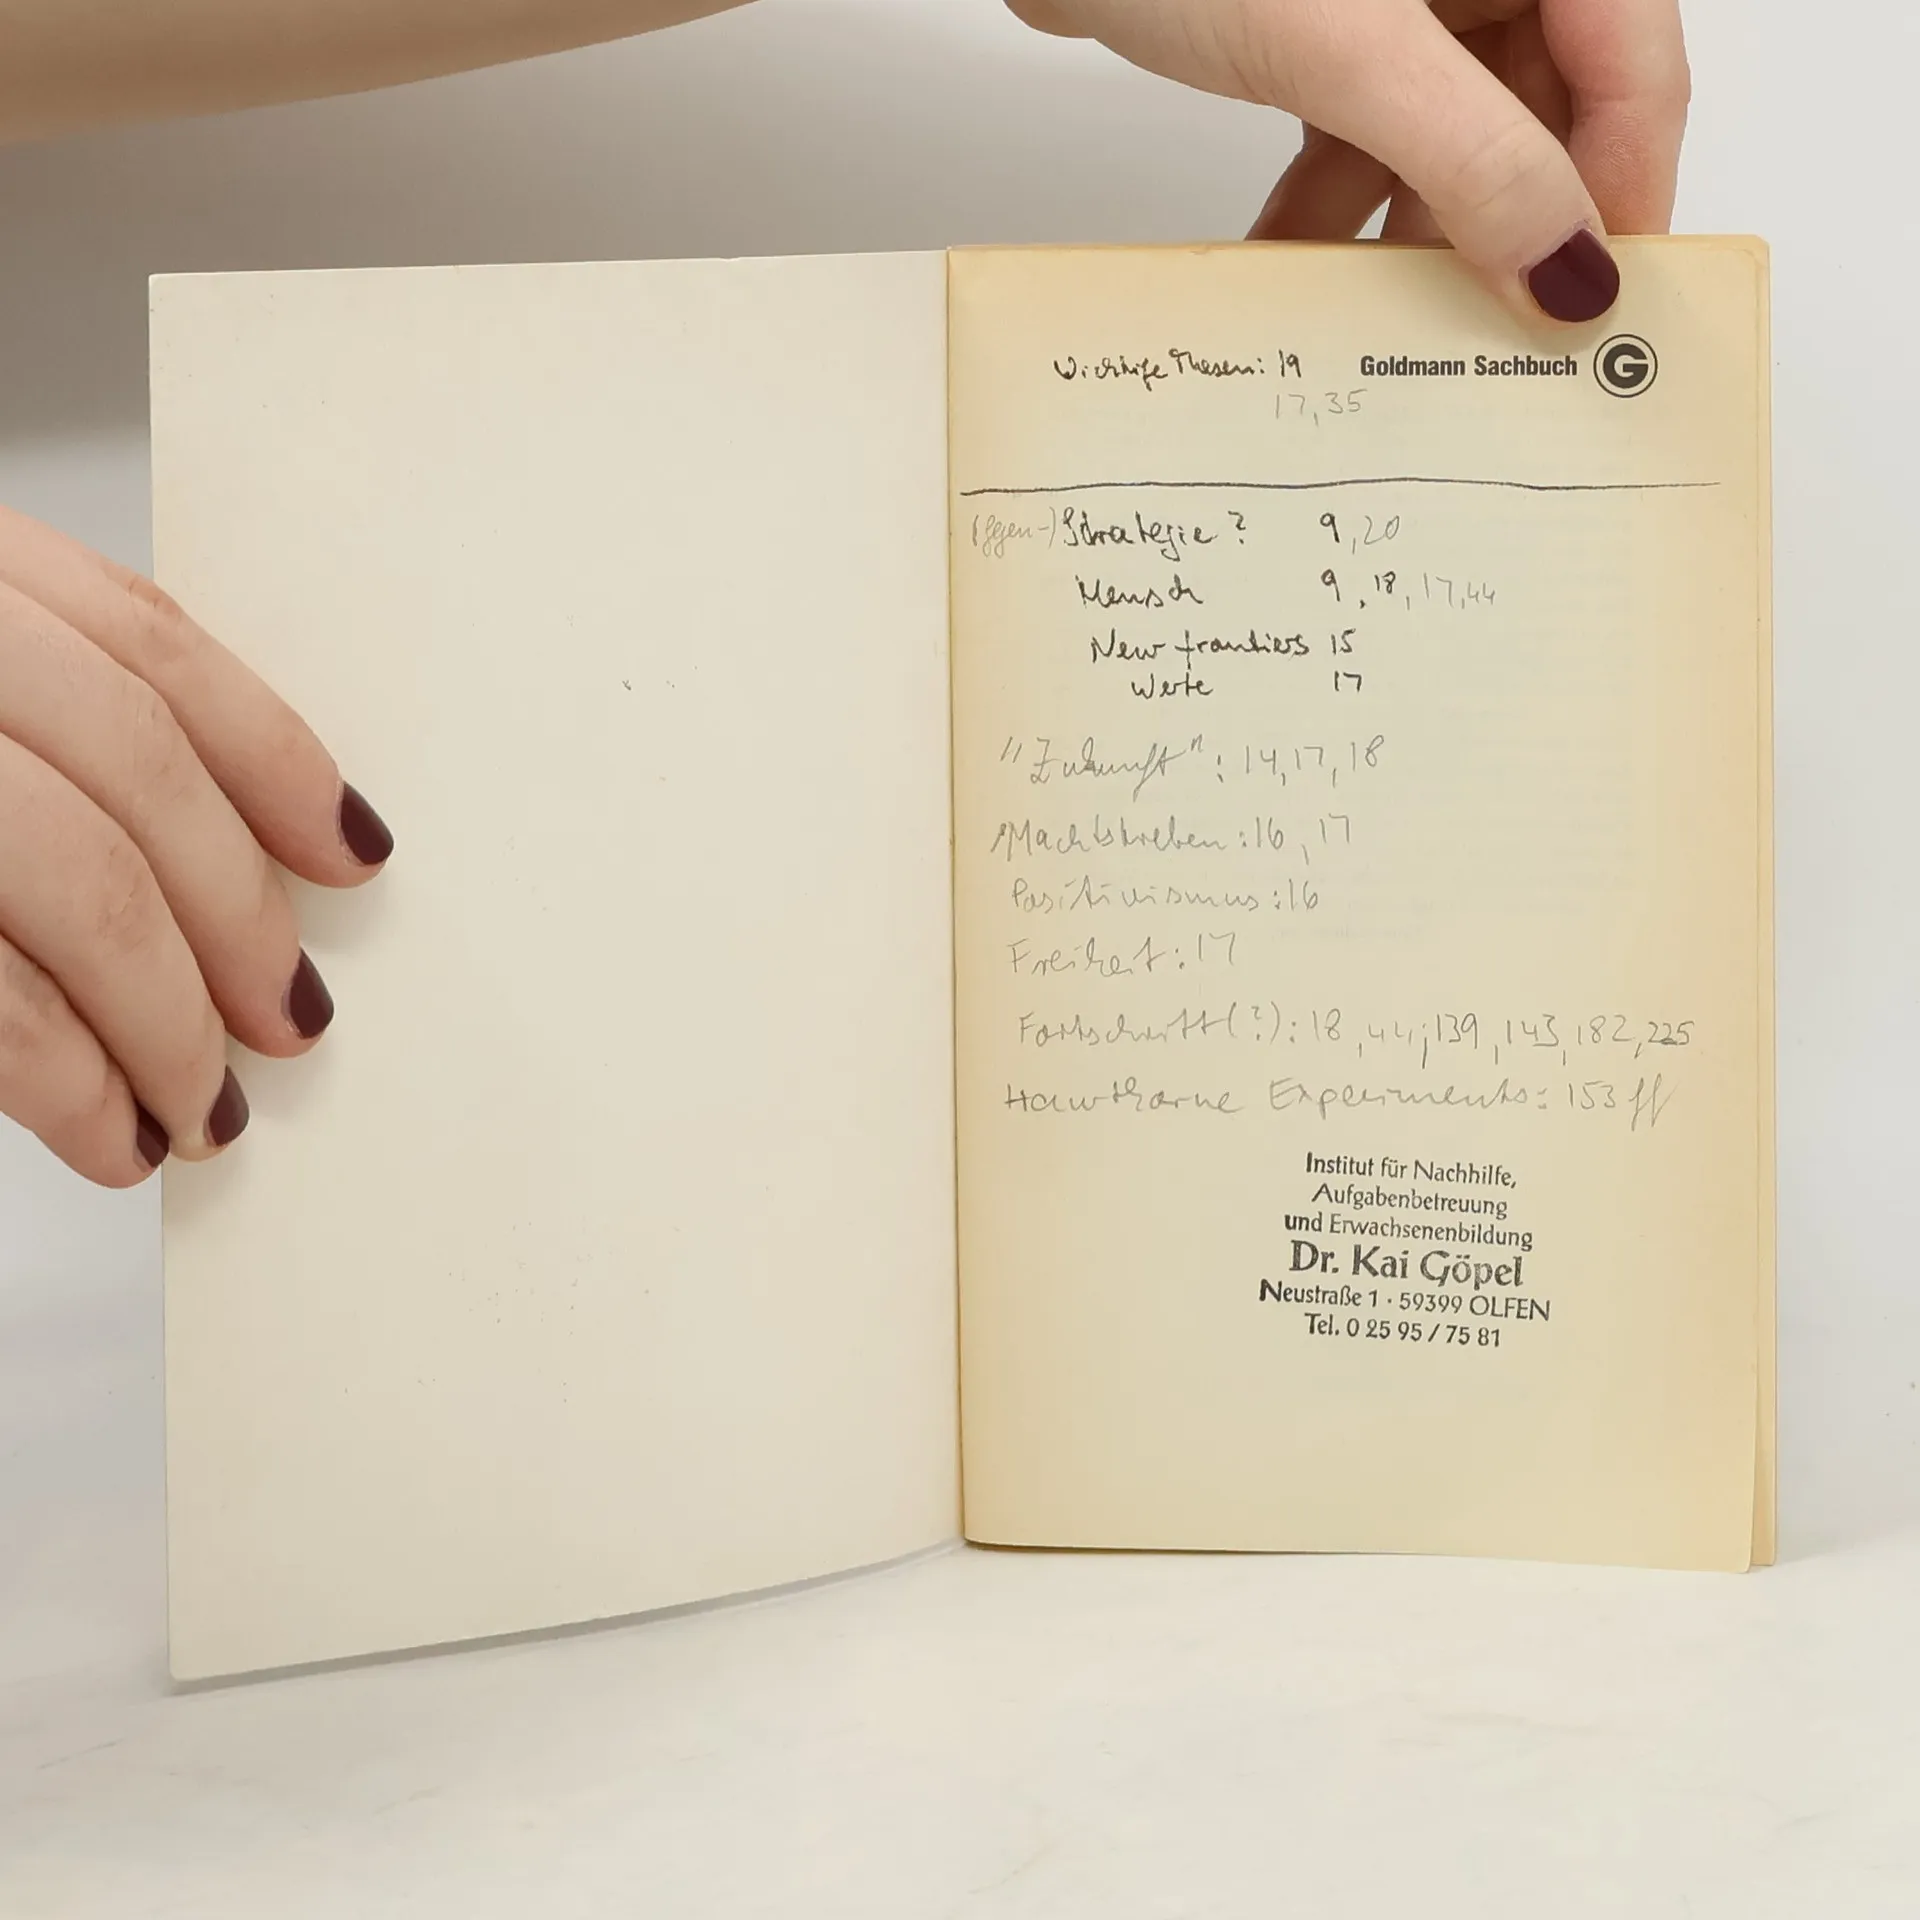 Wichtige Thesen: 19 Goldmann Sachbuch G
17, 35
(Gegen-) Strategie? 9, 20
Mensch 9, 18, 17, 44
New frontiers 15
Werte 17
"Zukunft": 14, 17, 18
Machtstreben: 16, 17
Positivismus: 16
Freiheit: 17
Fortschritt(?): 18, 44; 139, 143, 182, 225
Hawthorne Experiments: 153 ff
Institut für Nachhilfe,
Aufgabenbetreuung
und Erwachsenenbildung
Dr. Kai Göpel
Neustraße 1 · 59399 OLFEN
Tel. 0 25 95 / 75 81